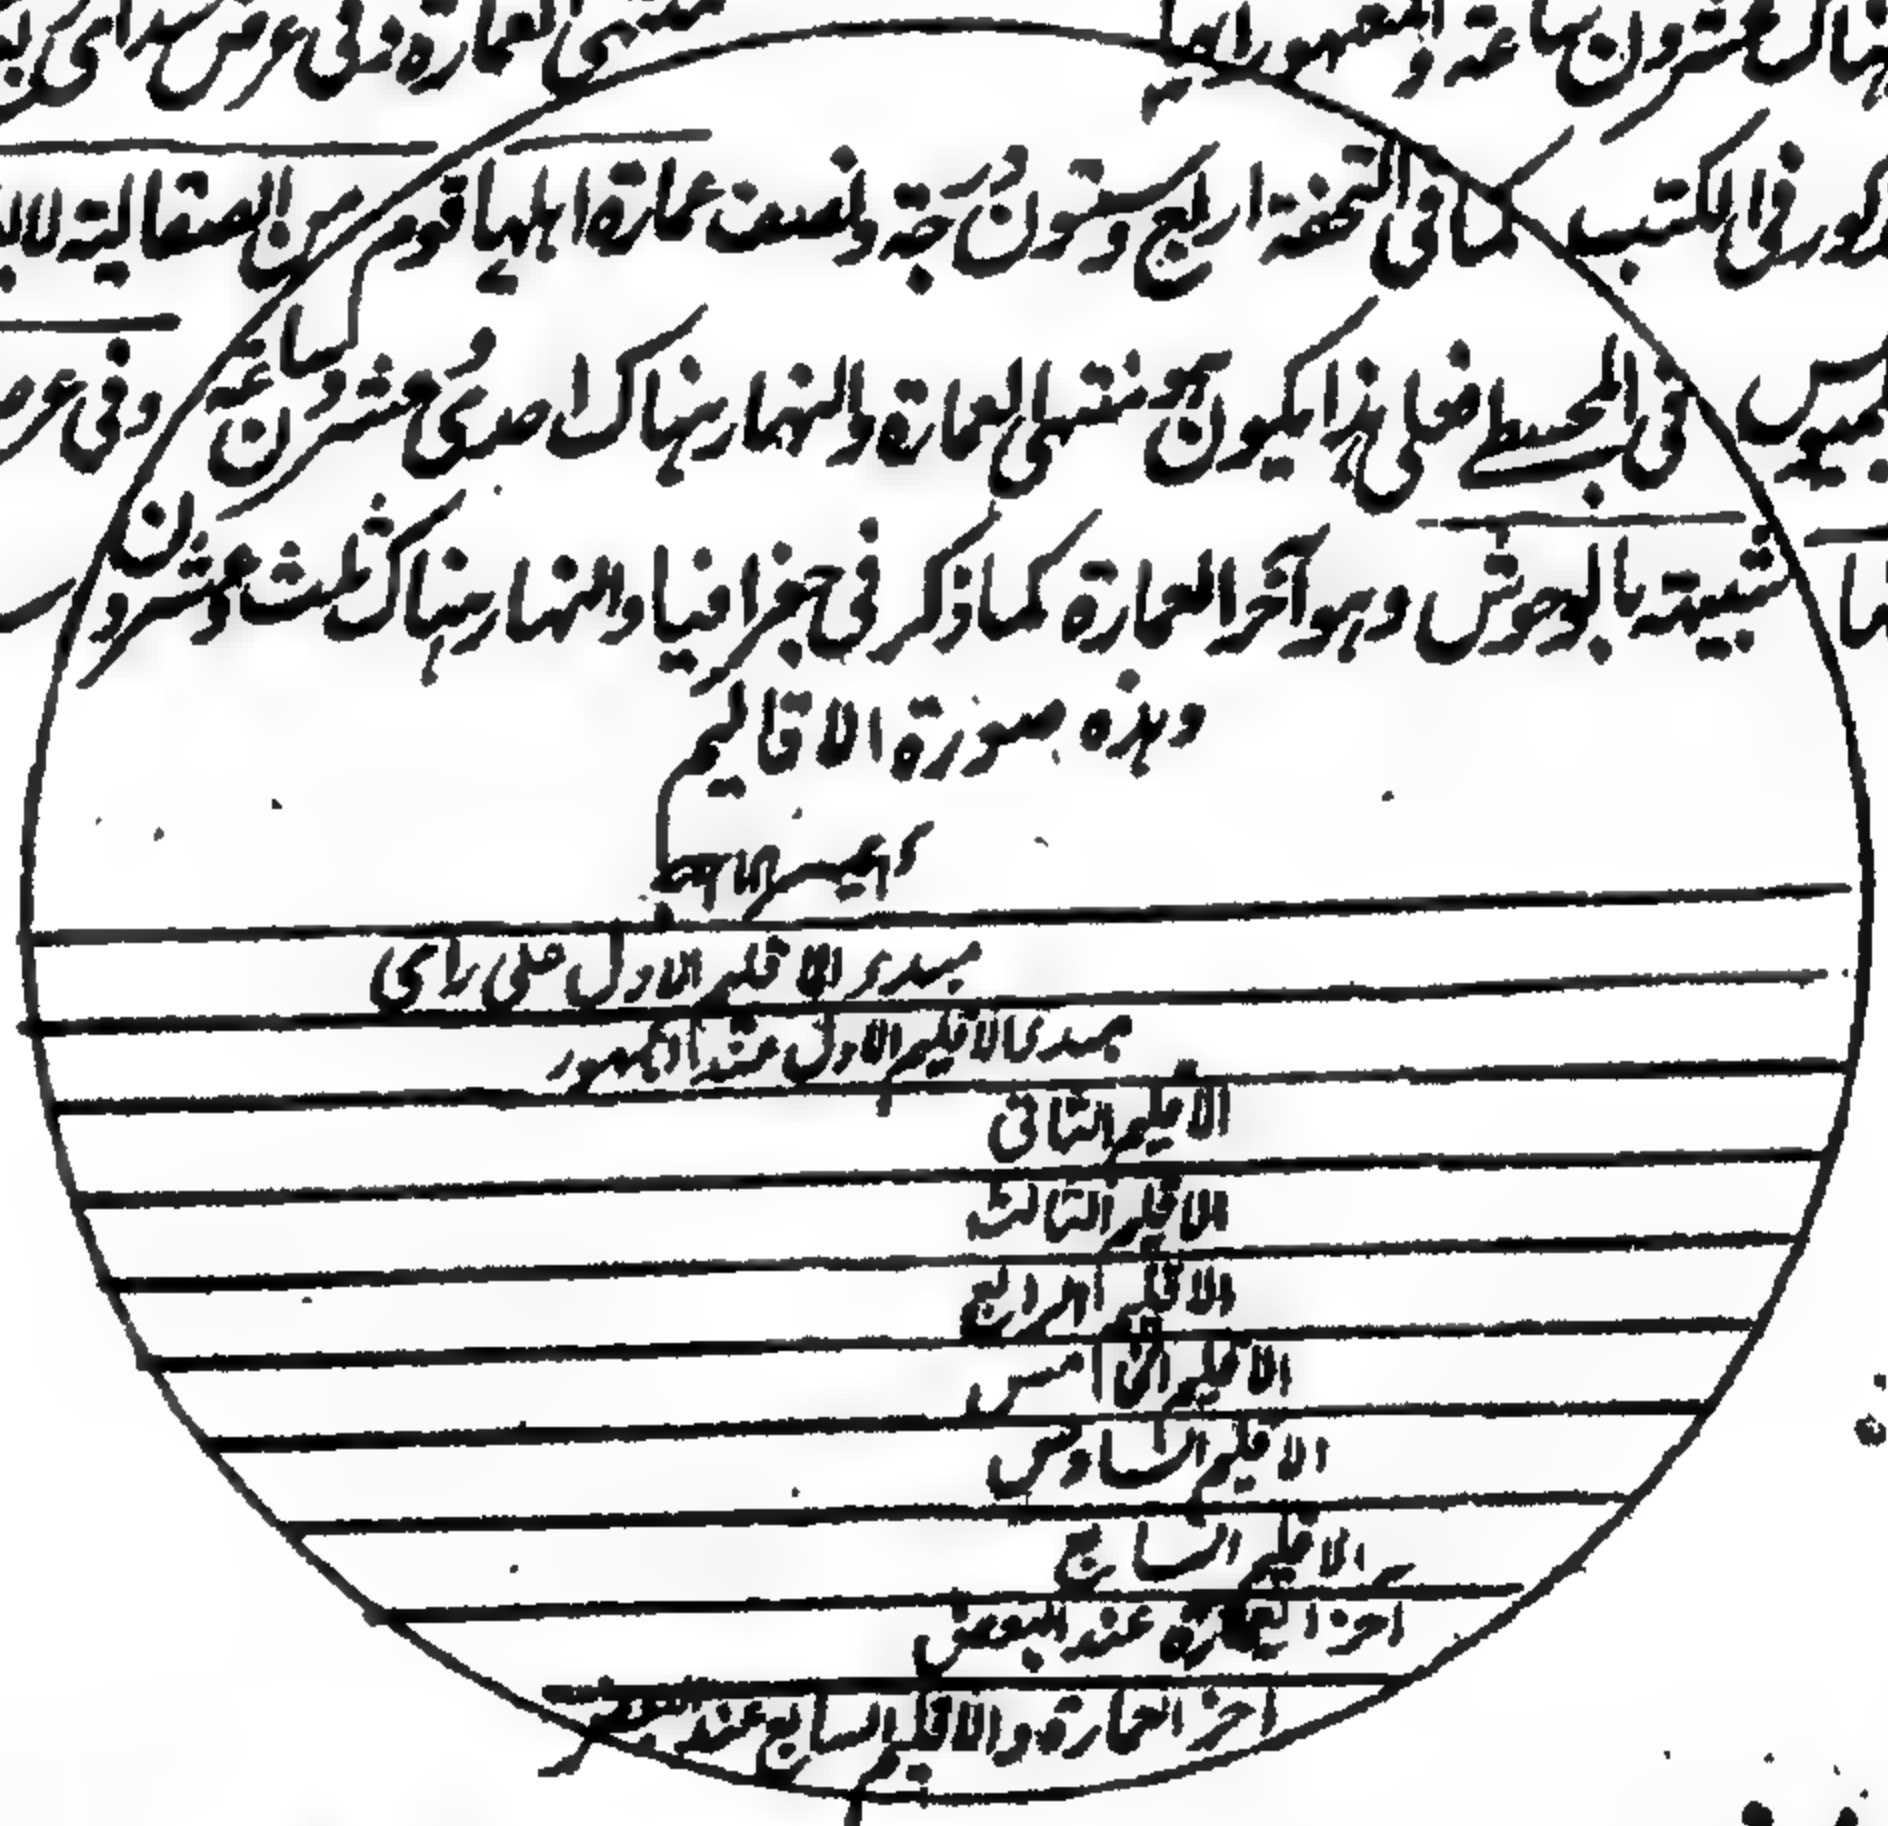 هناك عشرون ساعة والمشهور انها منتهى العمارة وفى عرض
كور فى الكتب كما فى التحفة اربع وستون درجة ونصف عمارة اهلها قوم من الصقالبة
فى المجسطى فعلى هذا يكون هو منتهى العمارة والنهار هناك احدى وعشرون ساعة وفى عرض
شبيهة بالوحوش وهو آخر العمارة كما ذكر فى جغرافيا والنهار هناك ثلث وعشرون
وهذه صورة الاقاليم
مبدء الاقليم الاول على راى
مبدى الاقليم الاول عند الجمهور
الاقليم الثانى
الاقليم الثالث
الاقليم الرابع
الاقليم الخامس
الاقليم السادس
الاقليم السابع
اخر العمارة عند البعض
اخر العمارة والاقليم السابع عند